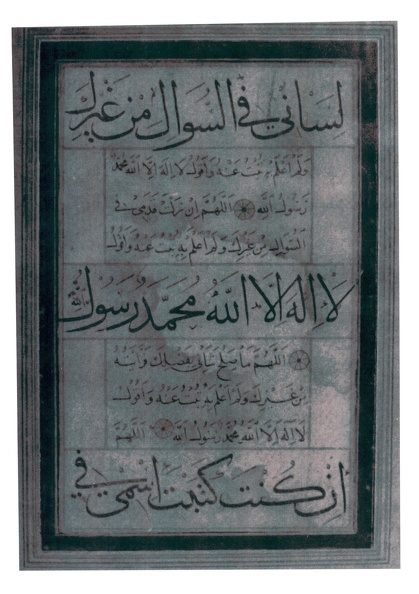 لساني في السوال من غيرك
ولم اعلم به تبت عنه واقول لا اله الا الله محمد
رسول الله اللهم ان زلت قدمي في
السوال من غيرك ولم اعلم به تبت عنه واقول
لا اله الا الله محمد رسول الله
اللهم ما صلح بفضلك
من غيرك ولم اعلم به تبت عنه واقول
لا اله الا الله محمد رسول الله اللهم
ان كنت كتبت اسمي في